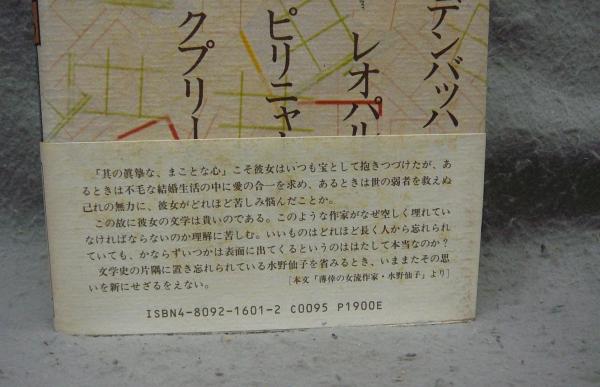 デンバッハ
レオパル
ピリニャ
クプリー
「其の眞摯な、まことな心」こそ彼女はいつも宝として抱きつづけたが、あ
るときは不毛な結婚生活の中に愛の合一を求め、あるときは世の弱者を救えぬ
己れの無力に、彼女がどれほど苦しみ悩んだことか。
この故に彼女の文学は貴いのである。このような作家がなぜ空しく埋れてい
なければならないのか理解に苦しむ。いいものはどれほど長く人から忘れられ
ていても、かならずいつかは表面に出てくるというのははたして本当なのか?
文学史の片隅に置き忘れられている水野仙子を省みるとき、いままたその思
いを新にせざるをえない。
[本文「薄倖の女流作家・水野仙子」より]
ISBN4-8092-1601-2 C0095 P1900E